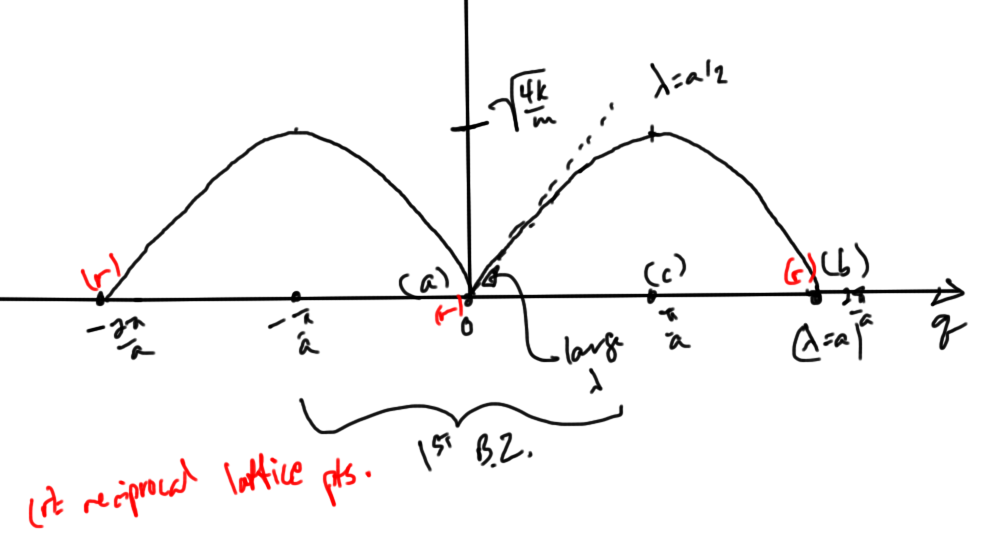 √4k/m
λ=a/2
(r)
(a)
(r)
(c)
(r)
(b)
-2π/a
-π/a
0
π/a
2π/a
q
(λ=a)
large
λ
1ST B.Z.
(r)= reciprocal lattice pts.